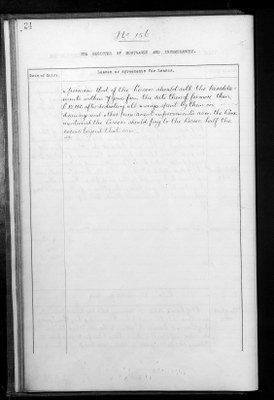 24
No 126
THE REGISTRY OF MORTGAGES AND INCUMBRANCES.
Date of Entry.
LEASES OR AGREEMENTS FOR LEASES.
a proviso that if the Lessor should sell the heredita-
ments within 7 years from the date thereof for more than
£10,000 after deducting all moneys spent by them on
draining and other permanent improvements as in the Lease
mentioned the Lessor should pay to the Lessee half the
excess beyond that sum